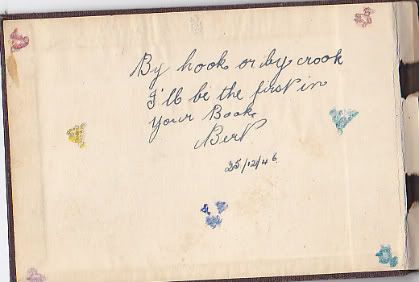 By hook or by crook
I'll be the first in
your Book.
Bert
25/12/46